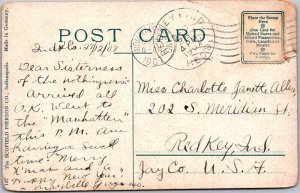 POST CARD
Place the Stamp Here
One Cent for United States and Island Possessions, Cuba, Canada and Mexico
Two Cents for Foreign
Made in Germany.
THE SCOFIELD PIERSON CO., Indianapolis.
Indpls 12/07
Dear Sisterness
of the nothingness
Arrived all
O.K. Went to
the "Manhatten"
this P.M. Am
having a swell
time. Merry
X'mas and a
Happy New Year
Miss Charlotte Janett Allen
202 S. Meridian St,
Red Key, Ind.
Jay Co. U.S.A.